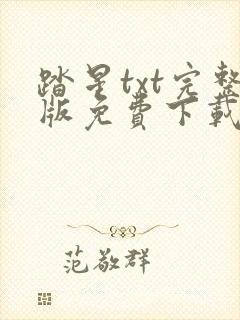 踏星txt完整
版免费下载
范敬群